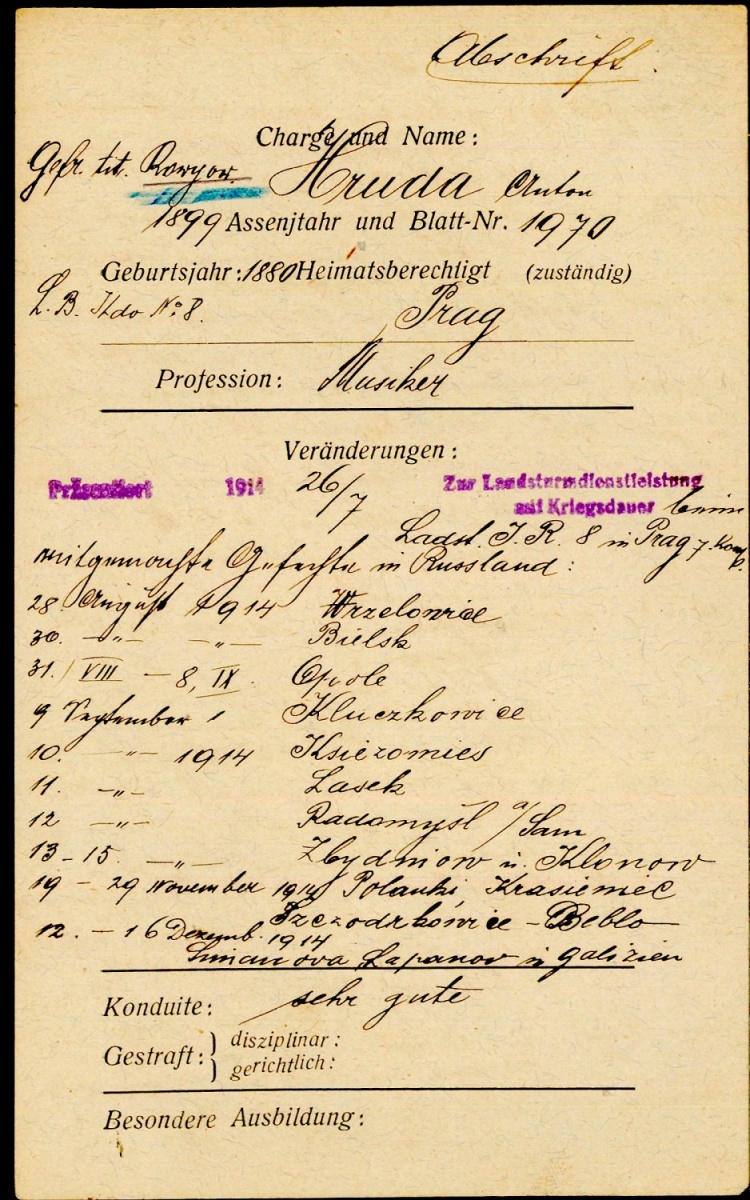 Abschrift.
Charge und Name:
Gefr. tit. Hruda Anton
1899 Assenjtahr und Blatt-Nr. 1970
Geburtsjahr: 1880 Heimatsberechtigt (zuständig)
L. B. Kdo No 8. Prag
Profession: Musiker
Veränderungen:
Präsentiert 1914 26/7 Zur Landsturmdienstleistung
auf Kriegsdauer beim
Ladst. I. R. 8 in Prag 7. Komp.
mitgemachte Gefechte in Russland:
28. August 1914 Wrzelowice
30. -"- -"- Bielsk
31. VIII - 8. IX. Opole
9 September Kluczkowice
10. -"- 1914 Ksiezomies
11. -"- Lasek
12 -"- Radomyśl a/Sam
13-15. -"- Zbydniow u. Klonow
19 - 29 November 1914 Polanki, Krasieniec
Szczodrkowice - Beblo
12. - 16 Dezemb. 1914
Limanova Lapanov in Galizien
Konduite: sehr gute
Gestraft: disziplinar:
gerichtlich:
Besondere Ausbildung: